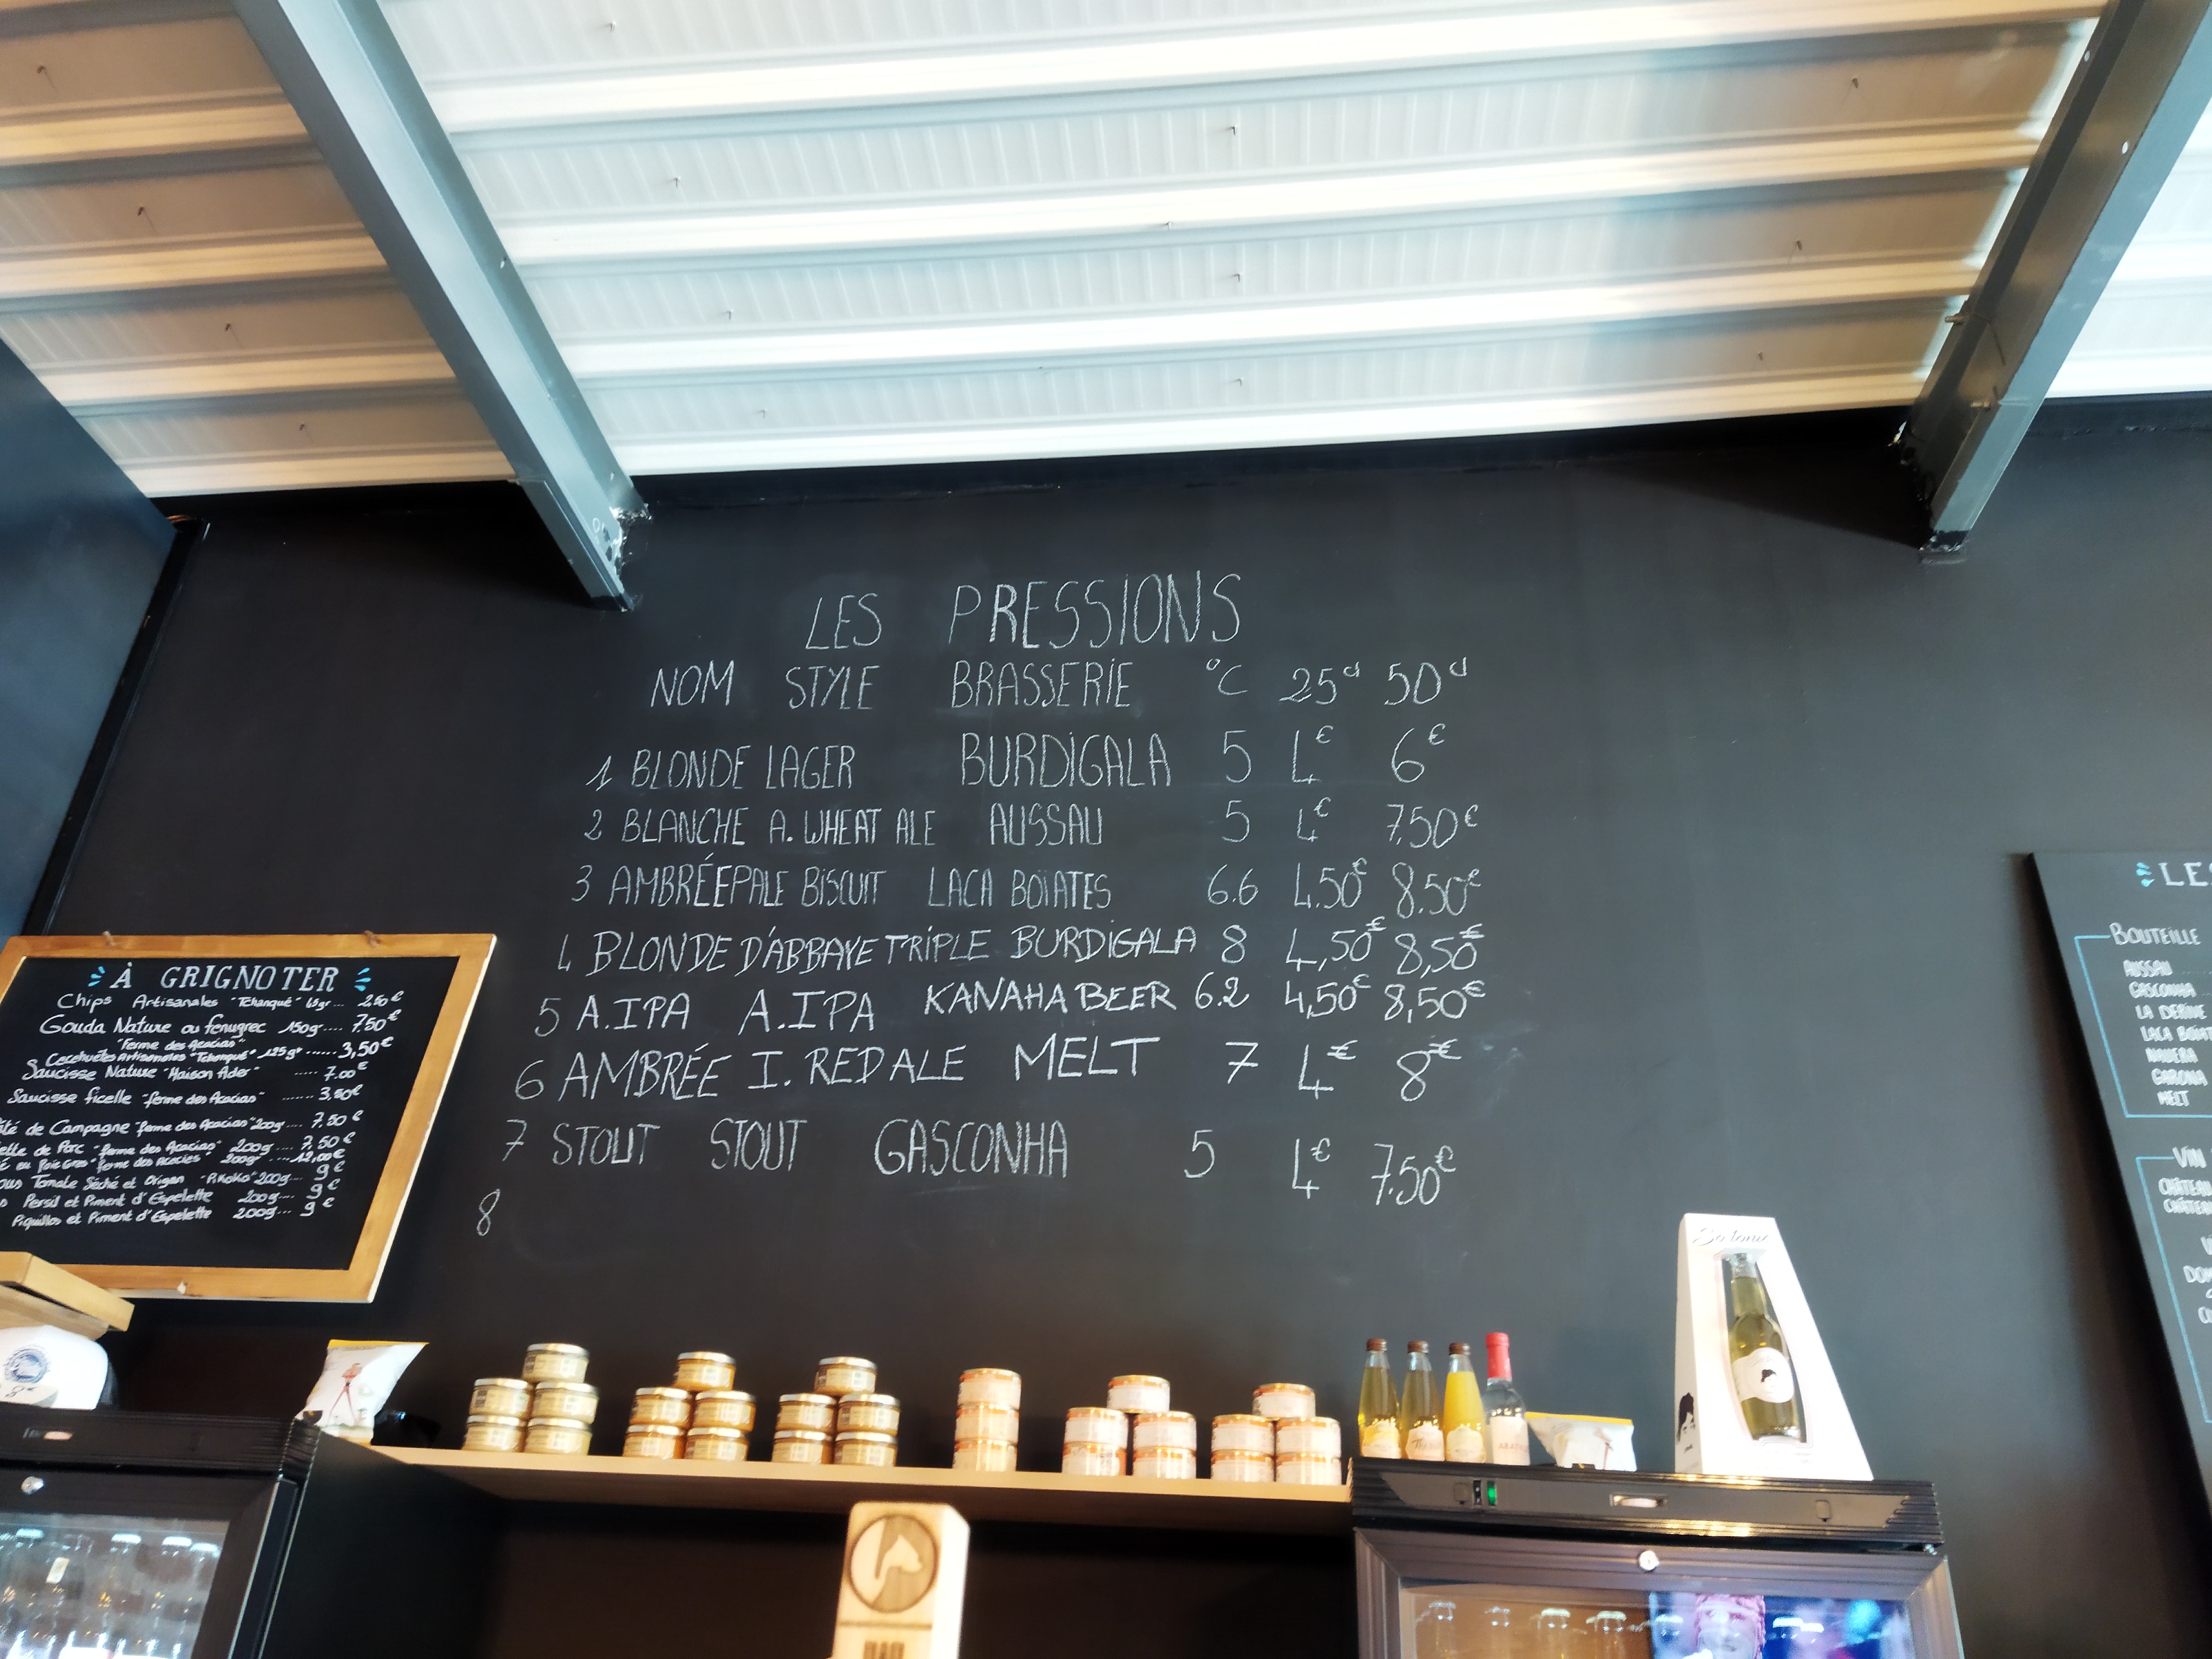 LES PRESSIONS
NOM STYLE BRASSERIE °C 25cl 50cl
1 BLONDE LAGER BURDIGALA 5 4€ 6€
2 BLANCHE A. WHEAT ALE AUSSAU 5 4€ 7.50€
3 AMBRÉE PALE BISCUIT LACA BOÏATES 6.6 4.50€ 8.50€
4 BLONDE D'ABBAYE TRIPLE BURDIGALA 8 4,50€ 8,50€
5 A.IPA A.IPA KANAHA BEER 6.2 4,50€ 8,50€
6 AMBRÉE I. RED ALE MELT 7 4€ 8€
7 STOUT STOUT GASCONHA 5 4€ 7.50€
8
À GRIGNOTER
Chips Artisanales "Tchanqué" ... 2,50€
Gouda Nature ou fenugrec 150gr.... 7.50€
"Ferme des Acacias"
Artisanales "Tchanqué" 125gr ...... 3,50€
Saucisse Nature "Maison Ader" ..... 7.00€
Saucisse ficelle "ferme des Acacias" ....... 3,50€
de Campagne "ferme des Acacias" 200g.... 7.50€
de Porc "ferme des Acacias" 200g.... 7,50€
Foie Gras "ferme des Acacias" 200gr ....12,00€
Tomate Séché et Origan 200g... 9€
Persil et Piment d'Espelette 200g.... 9€
Piquillos et Piment d'Espelette 200g... 9€
LES
BOUTEILLE
AUSSAU
GASCONHA
LA DERIVE
LACA
GARONA
MELT
VIN
CHÂTEAU
CHÂTEAU
So tonic